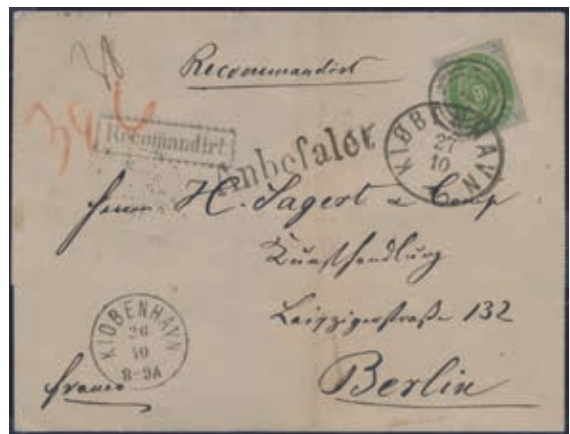 Recommandirt
Recomandirt
Anbefalet
KIØBENHAVN
27
10
Herrn H. Sagert & Comp
Kunsthandlung
Leipzigerstraße 132
Berlin
KIØBENHAVN
26
10
8-9A
franco